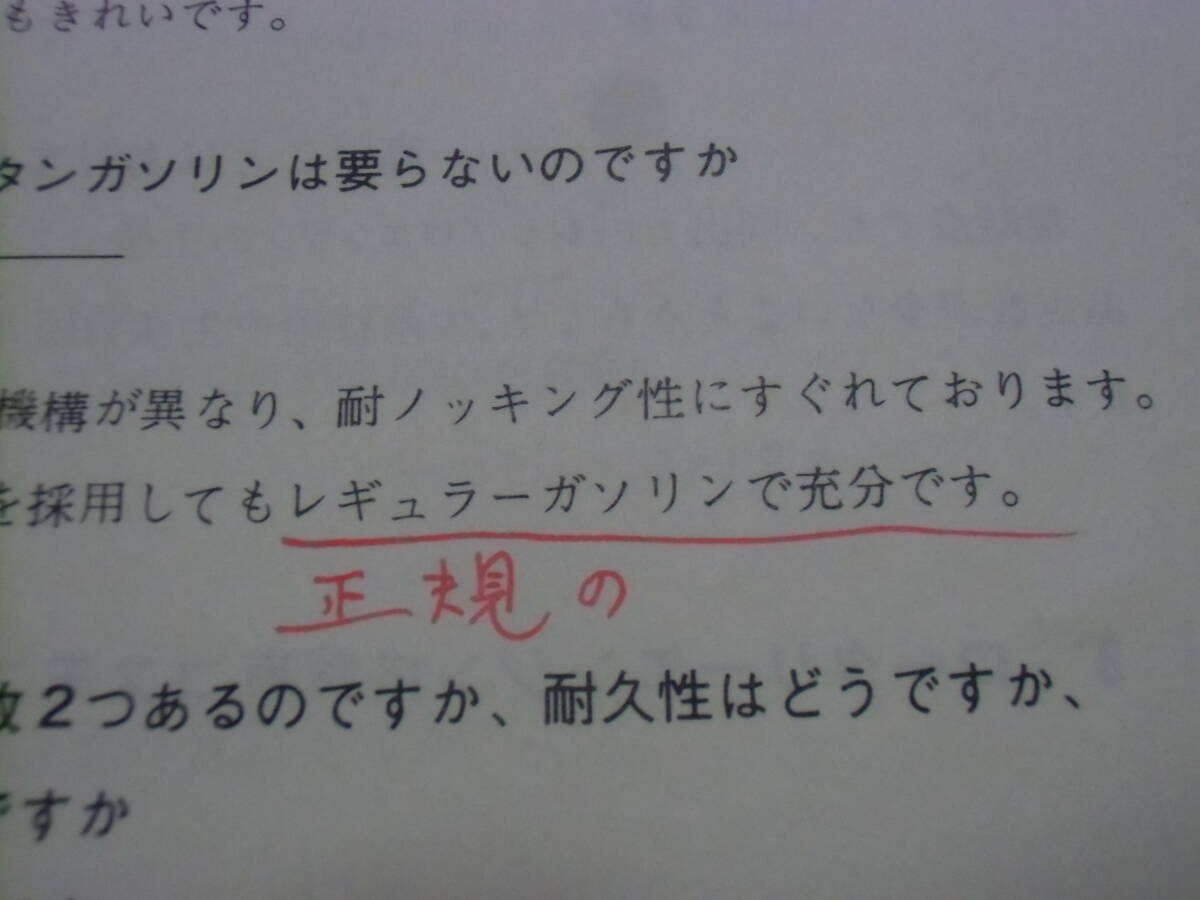 もきれいです。
タンガソリンは要らないのですか
機構が異なり、耐ノッキング性にすぐれております。
を採用してもレギュラーガソリンで充分です。
正規の
2つあるのですか、耐久性はどうですか、
ですか